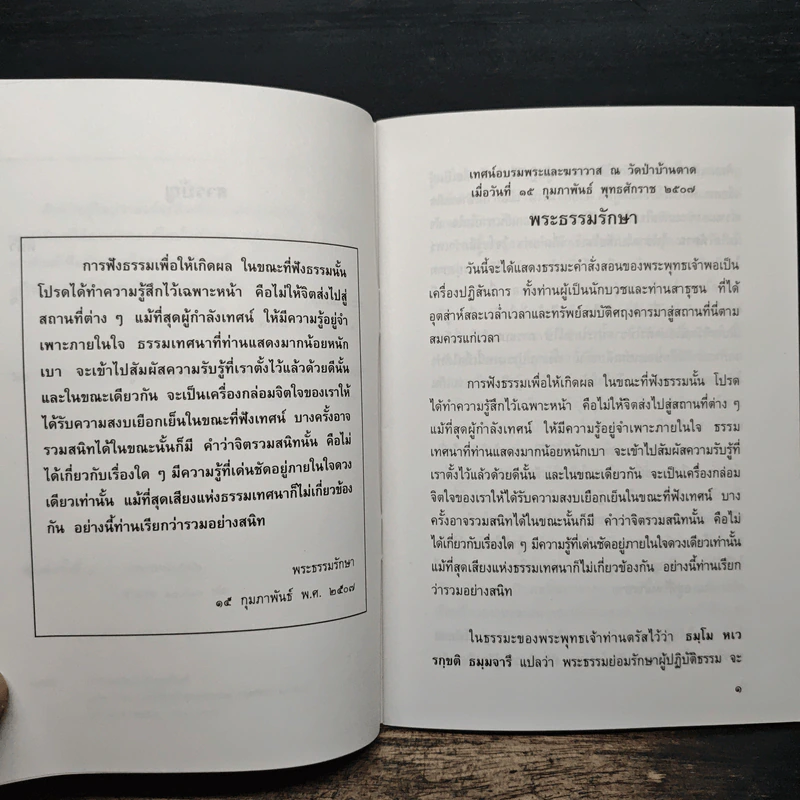 การฟังธรรมเพื่อให้เกิดผล ในขณะที่ฟังธรรมนั้น
โปรดได้ทำความรู้สึกไว้เฉพาะหน้า คือไม่ให้จิตส่งไปสู่
สถานที่ต่าง ๆ แม้ที่สุดผู้กำลังเทศน์ ให้มีความรู้อยู่จำ
เพาะภายในใจ ธรรมเทศนาที่ท่านแสดงมากน้อยหนัก
เบา จะเข้าไปสัมผัสความรับรู้ที่เราตั้งไว้แล้วด้วยดีนั้น
และในขณะเดียวกัน จะเป็นเครื่องกล่อมจิตใจของเราให้
ได้รับความสงบเยือกเย็นในขณะที่ฟังเทศน์ บางครั้งอาจ
รวมสนิทได้ในขณะนั้นก็มี คำว่าจิตรวมสนิทนั้น คือไม่
ได้เกี่ยวกับเรื่องใด ๆ มีความรู้ที่เด่นชัดอยู่ภายในใจดวง
เดียวเท่านั้น แม้ที่สุดเสียงแห่งธรรมเทศนาก็ไม่เกี่ยวข้อง
กัน อย่างนี้ท่านเรียกว่ารวมอย่างสนิท
พระธรรมรักษา
๑๕ กุมภาพันธ์ พ.ศ. ๒๕๐๗
เทศน์อบรมพระและฆราวาส ณ วัดป่าบ้านตาด
เมื่อวันที่ ๑๕ กุมภาพันธ์ พุทธศักราช ๒๕๐๗
พระธรรมรักษา
วันนี้จะได้แสดงธรรมะคำสั่งสอนของพระพุทธเจ้าพอเป็น
เครื่องปฏิสันถาร ทั้งท่านผู้เป็นนักบวชและท่านสาธุชน ที่ได้
อุตส่าห์สละเวล่ำเวลาและทรัพย์สมบัติศฤงคารมาสู่สถานที่นี่ตาม
สมควรแก่เวลา
การฟังธรรมเพื่อให้เกิดผล ในขณะที่ฟังธรรมนั้น โปรด
ได้ทำความรู้สึกไว้เฉพาะหน้า คือไม่ให้จิตส่งไปสู่สถานที่ต่าง ๆ
แม้ที่สุดผู้กำลังเทศน์ ให้มีความรู้อยู่จำเพาะภายในใจ ธรรม
เทศนาที่ท่านแสดงมากน้อยหนักเบา จะเข้าไปสัมผัสความรับรู้ที่
เราตั้งไว้แล้วด้วยดีนั้น และในขณะเดียวกัน จะเป็นเครื่องกล่อม
จิตใจของเราให้ได้รับความสงบเยือกเย็นในขณะที่ฟังเทศน์ บาง
ครั้งอาจรวมสนิทได้ในขณะนั้นก็มี คำว่าจิตรวมสนิทนั้น คือไม่
ได้เกี่ยวกับเรื่องใด ๆ มีความรู้ที่เด่นชัดอยู่ภายในใจดวงเดียวเท่านั้น
แม้ที่สุดเสียงแห่งธรรมเทศนาก็ไม่เกี่ยวข้องกัน อย่างนี้ท่านเรียก
ว่ารวมอย่างสนิท
ในธรรมะของพระพุทธเจ้าท่านตรัสไว้ว่า ธมฺโม หเว
รกฺขติ ธมฺมจารึ แปลว่า พระธรรมย่อมรักษาผู้ปฏิบัติธรรม จะ
๑